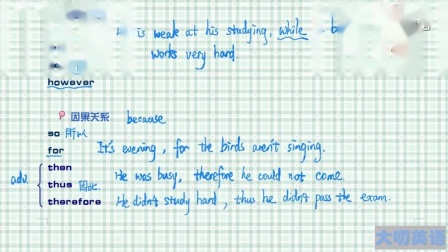 is weak at his studying, while
works very hard.
however
因果关系 because
so 所以
for It's evening, for the birds aren't singing.
then He was busy, therefore he could not come
adv. thus 因此
therefore He didn't study hard, thus he didn't pass the exam.
大叨英语